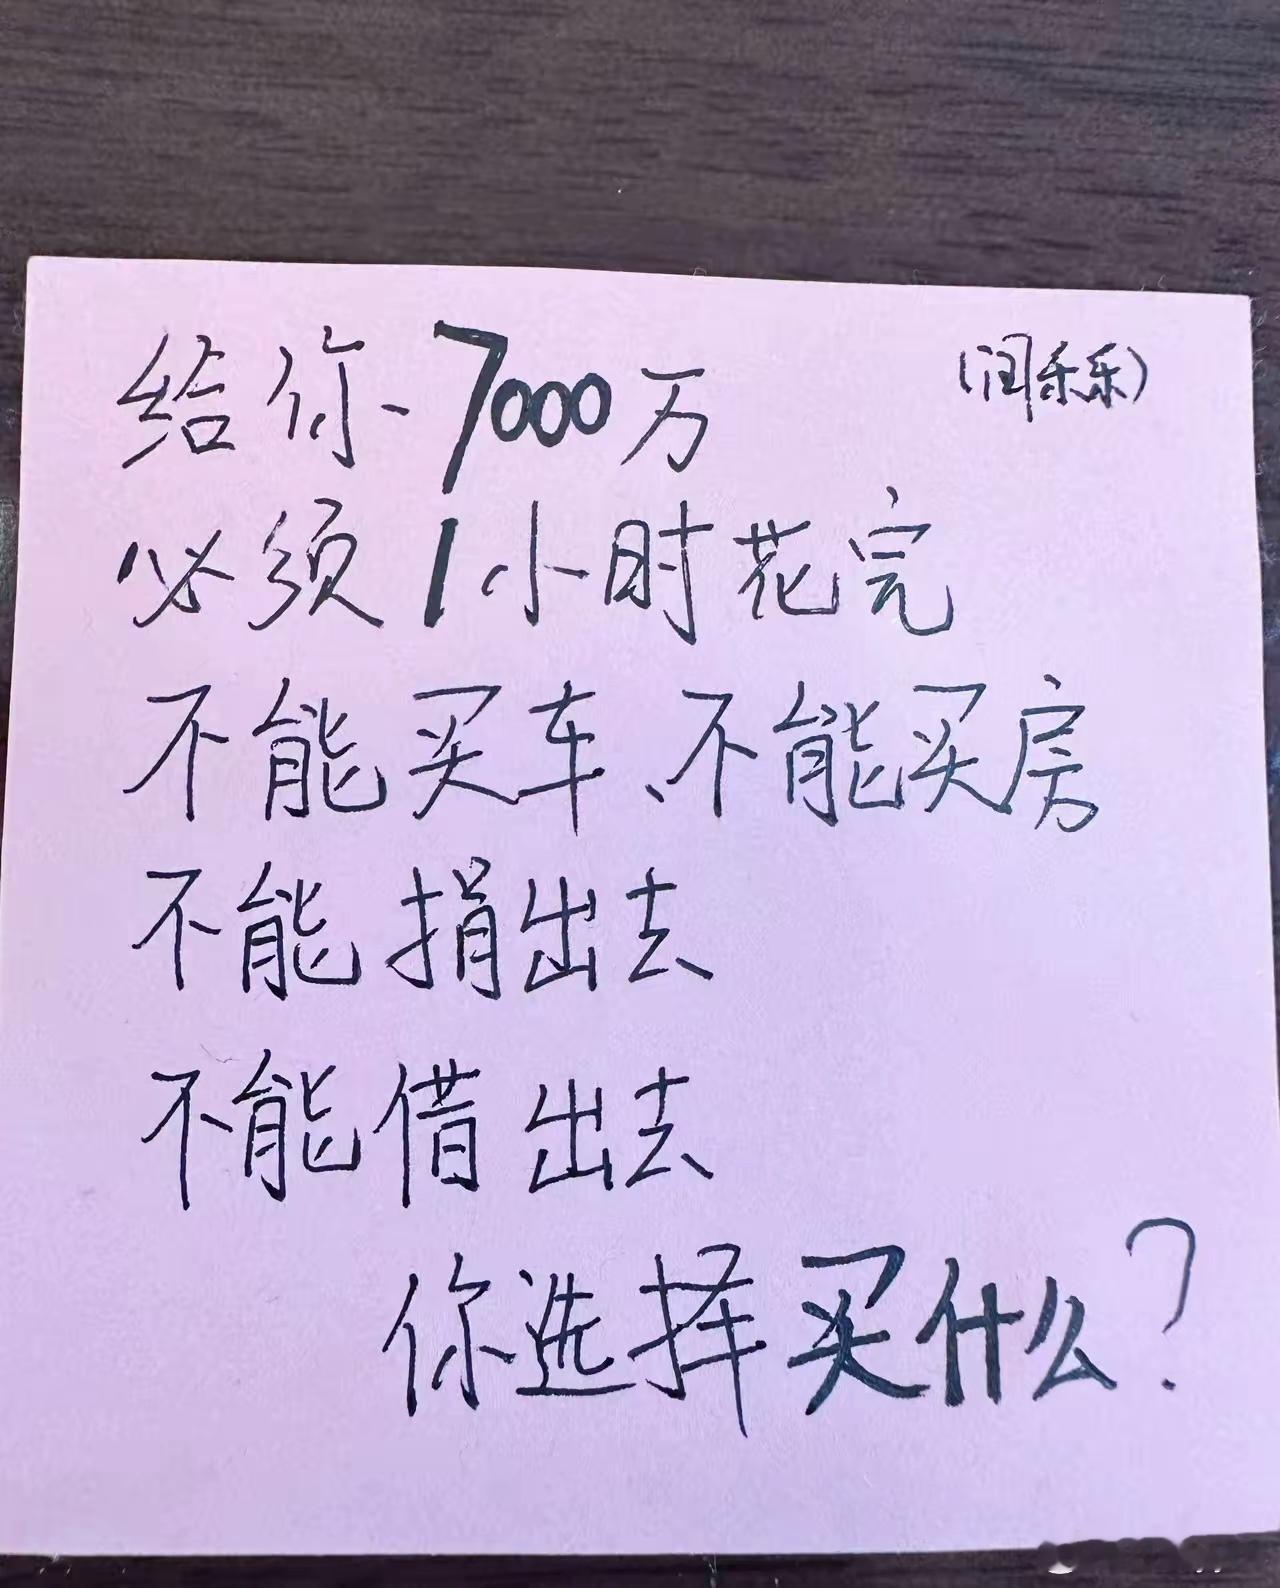 给你7000万 (闰乐乐)
必须1小时花完
不能买车、不能买房
不能捐出去
不能借出去
你选择买什么?